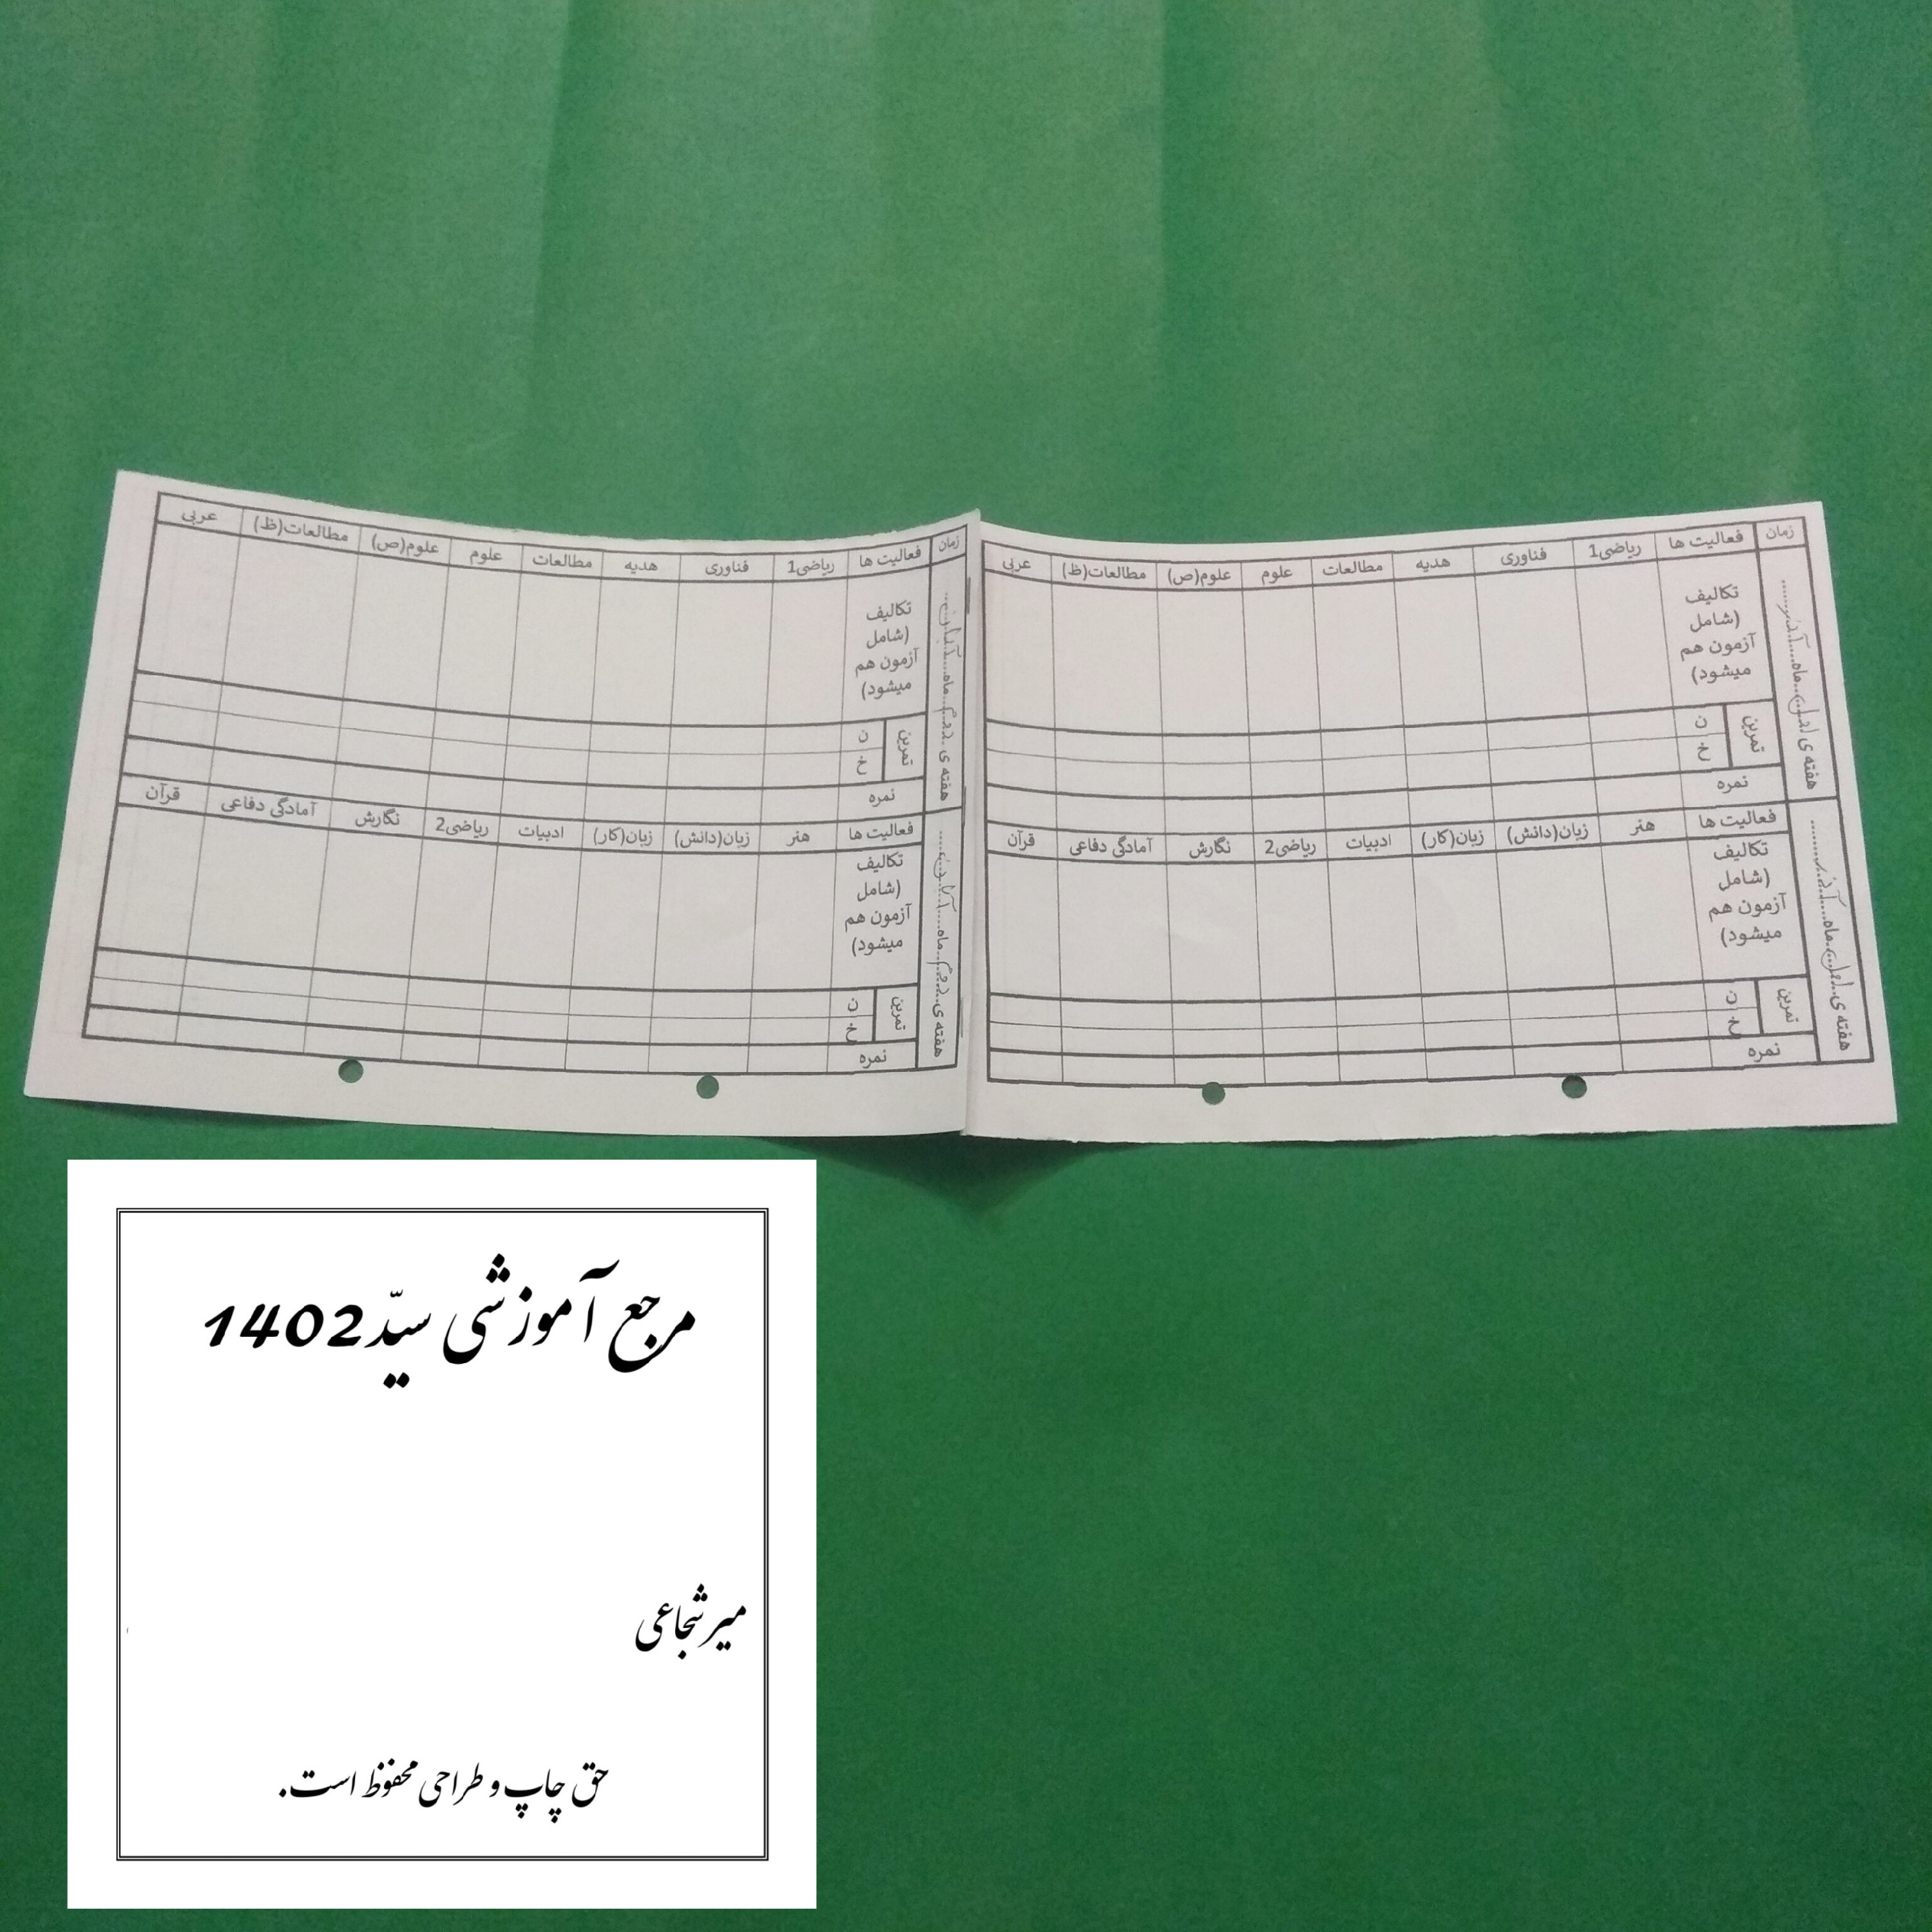 زمان فعالیت ها ریاضی1 فناوری هدیه مطالعات علوم علوم(ص) مطالعات(ظ) عربی
هفته ی اول ماه آذر
تکالیف
(شامل
آزمون هم
میشود)
تمرین
ن
خ
نمره
فعالیت ها هنر زبان(دانش) زبان(کار) ادبیات ریاضی2 نگارش آمادگی دفاعی قرآن
هفته ی اول ماه آذر
تکالیف
(شامل
آزمون هم
میشود)
تمرین
ن
خ
نمره
زمان فعالیت ها ریاضی1 فناوری هدیه مطالعات علوم علوم(ص) مطالعات(ظ) عربی
هفته ی ماه
تکالیف
(شامل
آزمون هم
میشود)
تمرین
ن
خ
نمره
فعالیت ها هنر زبان(دانش) زبان(کار) ادبیات ریاضی2 نگارش آمادگی دفاعی قرآن
هفته ی ماه
تکالیف
(شامل
آزمون هم
میشود)
تمرین
ن
خ
نمره
مرجع آموزشی سیّد1402
میرشجاعی
حق چاپ و طراحی محفوظ است.